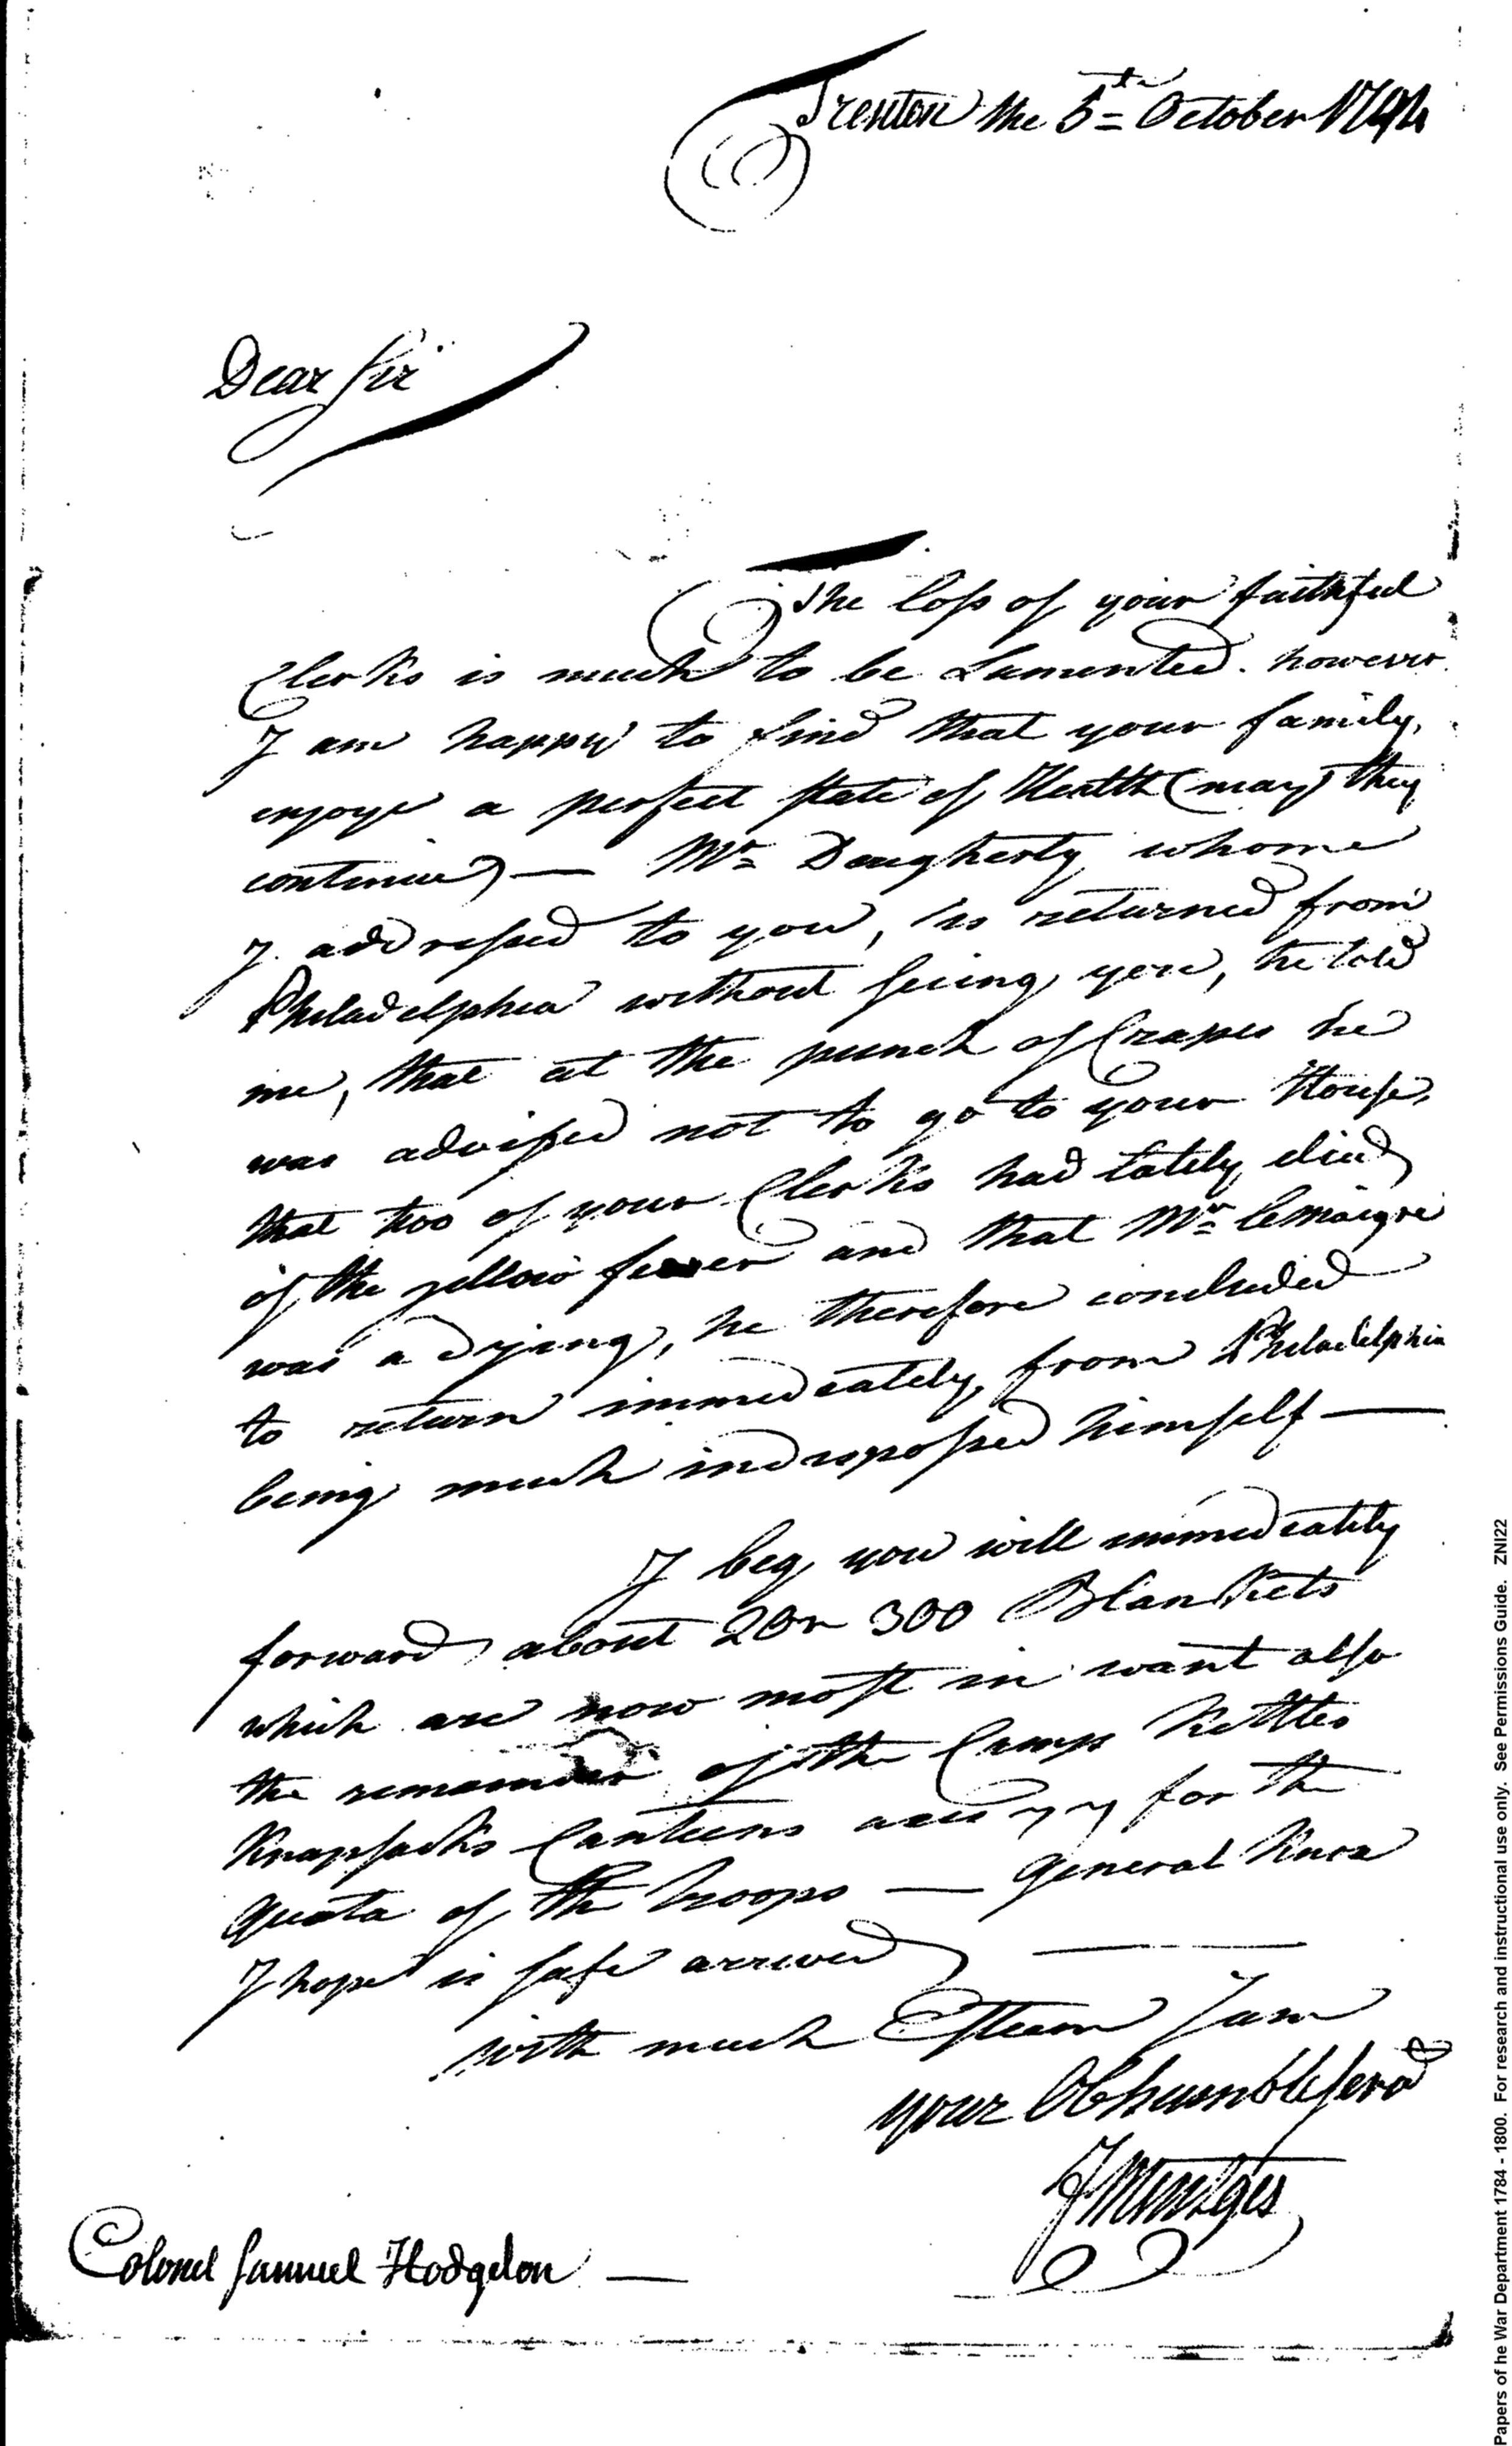 Trenton the 5th October 1794
Dear Sir
The loss of your faithful
Clerks is much to be Lamented. however
I am happy to find that your family,
enjoye a perfect state of Health (may they
continue) — Mr Dougherty whome
I addressed to you, is returned from
Philadelphia without seeing you, he told
me, that at the punch of Grapes he
was advissed not to go to your House,
that two of your Clerks had lately died
of the yellow fever and that Mr lemaigre
was a dying, he therefore concluded
to return immediately from Philadelphia
being much indispossed himself —
I beg you will immediately
forward about 20r 300 Blankets
which are now most in want also
the remainder of the Camp Kettles
Knapsacks Canteens for the
quota of the troops — General Knox
I hope is safe arrived —
with much Esteem I am
your Ob humble servd
J Mentges
Colonel Samuel Hodgdon —
Papers of he War Department 1784 - 1800. For research and instructional use only. See Permissions Guide. ZNI22